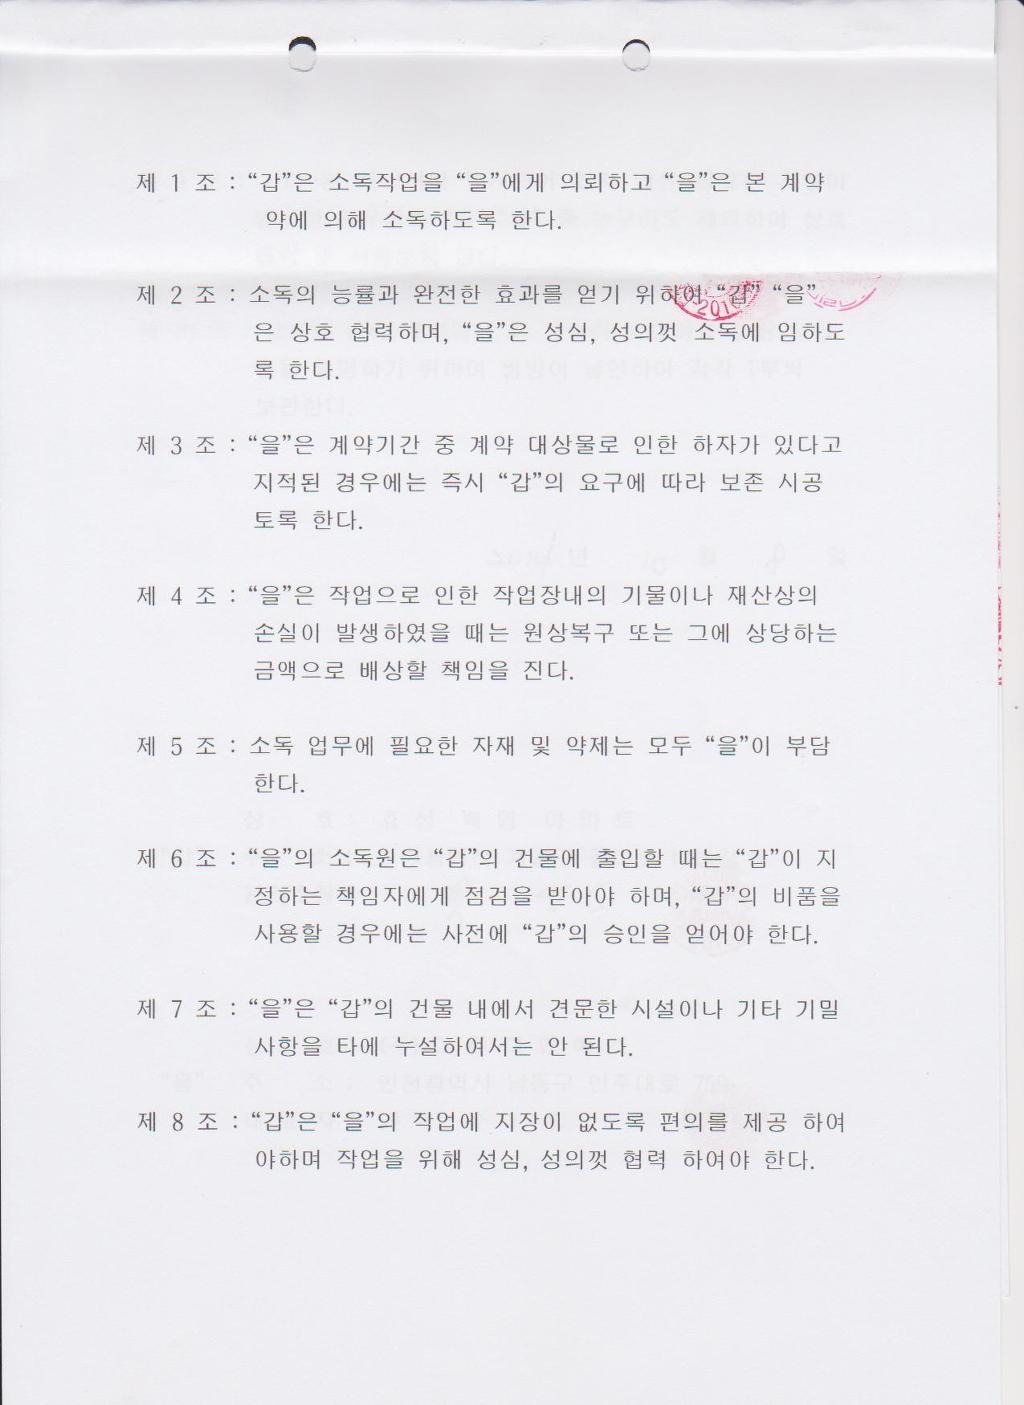 제 1 조 : “갑”은 소독작업을 “을”에게 의뢰하고 “을”은 본 계약
약에 의해 소독하도록 한다.
제 2 조 : 소독의 능률과 완전한 효과를 얻기 위하여 “갑” “을”
은 상호 협력하며, “을”은 성심, 성의껏 소독에 임하도
록 한다.
제 3 조 : “을”은 계약기간 중 계약 대상물로 인한 하자가 있다고
지적된 경우에는 즉시 “갑”의 요구에 따라 보존 시공
토록 한다.
제 4 조 : “을”은 작업으로 인한 작업장내의 기물이나 재산상의
손실이 발생하였을 때는 원상복구 또는 그에 상당하는
금액으로 배상할 책임을 진다.
제 5 조 : 소독 업무에 필요한 자재 및 약제는 모두 “을”이 부담
한다.
제 6 조 : “을”의 소독원은 “갑”의 건물에 출입할 때는 “갑”이 지
정하는 책임자에게 점검을 받아야 하며, “갑”의 비품을
사용할 경우에는 사전에 “갑”의 승인을 얻어야 한다.
제 7 조 : “을”은 “갑”의 건물 내에서 견문한 시설이나 기타 기밀
사항을 타에 누설하여서는 안 된다.
제 8 조 : “갑”은 “을”의 작업에 지장이 없도록 편의를 제공 하여
야하며 작업을 위해 성심, 성의껏 협력 하여야 한다.